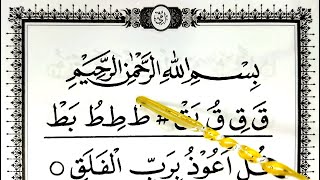 بِسْمِ اللّٰهِ الرَّحْمٰنِ الرَّحِيْمِ
قَ قِ قُ بَقْ # طَ طِ طُ بَطْ
قُلْ اَعُوْذُ بِرَبِّ الْفَلَقِ ○